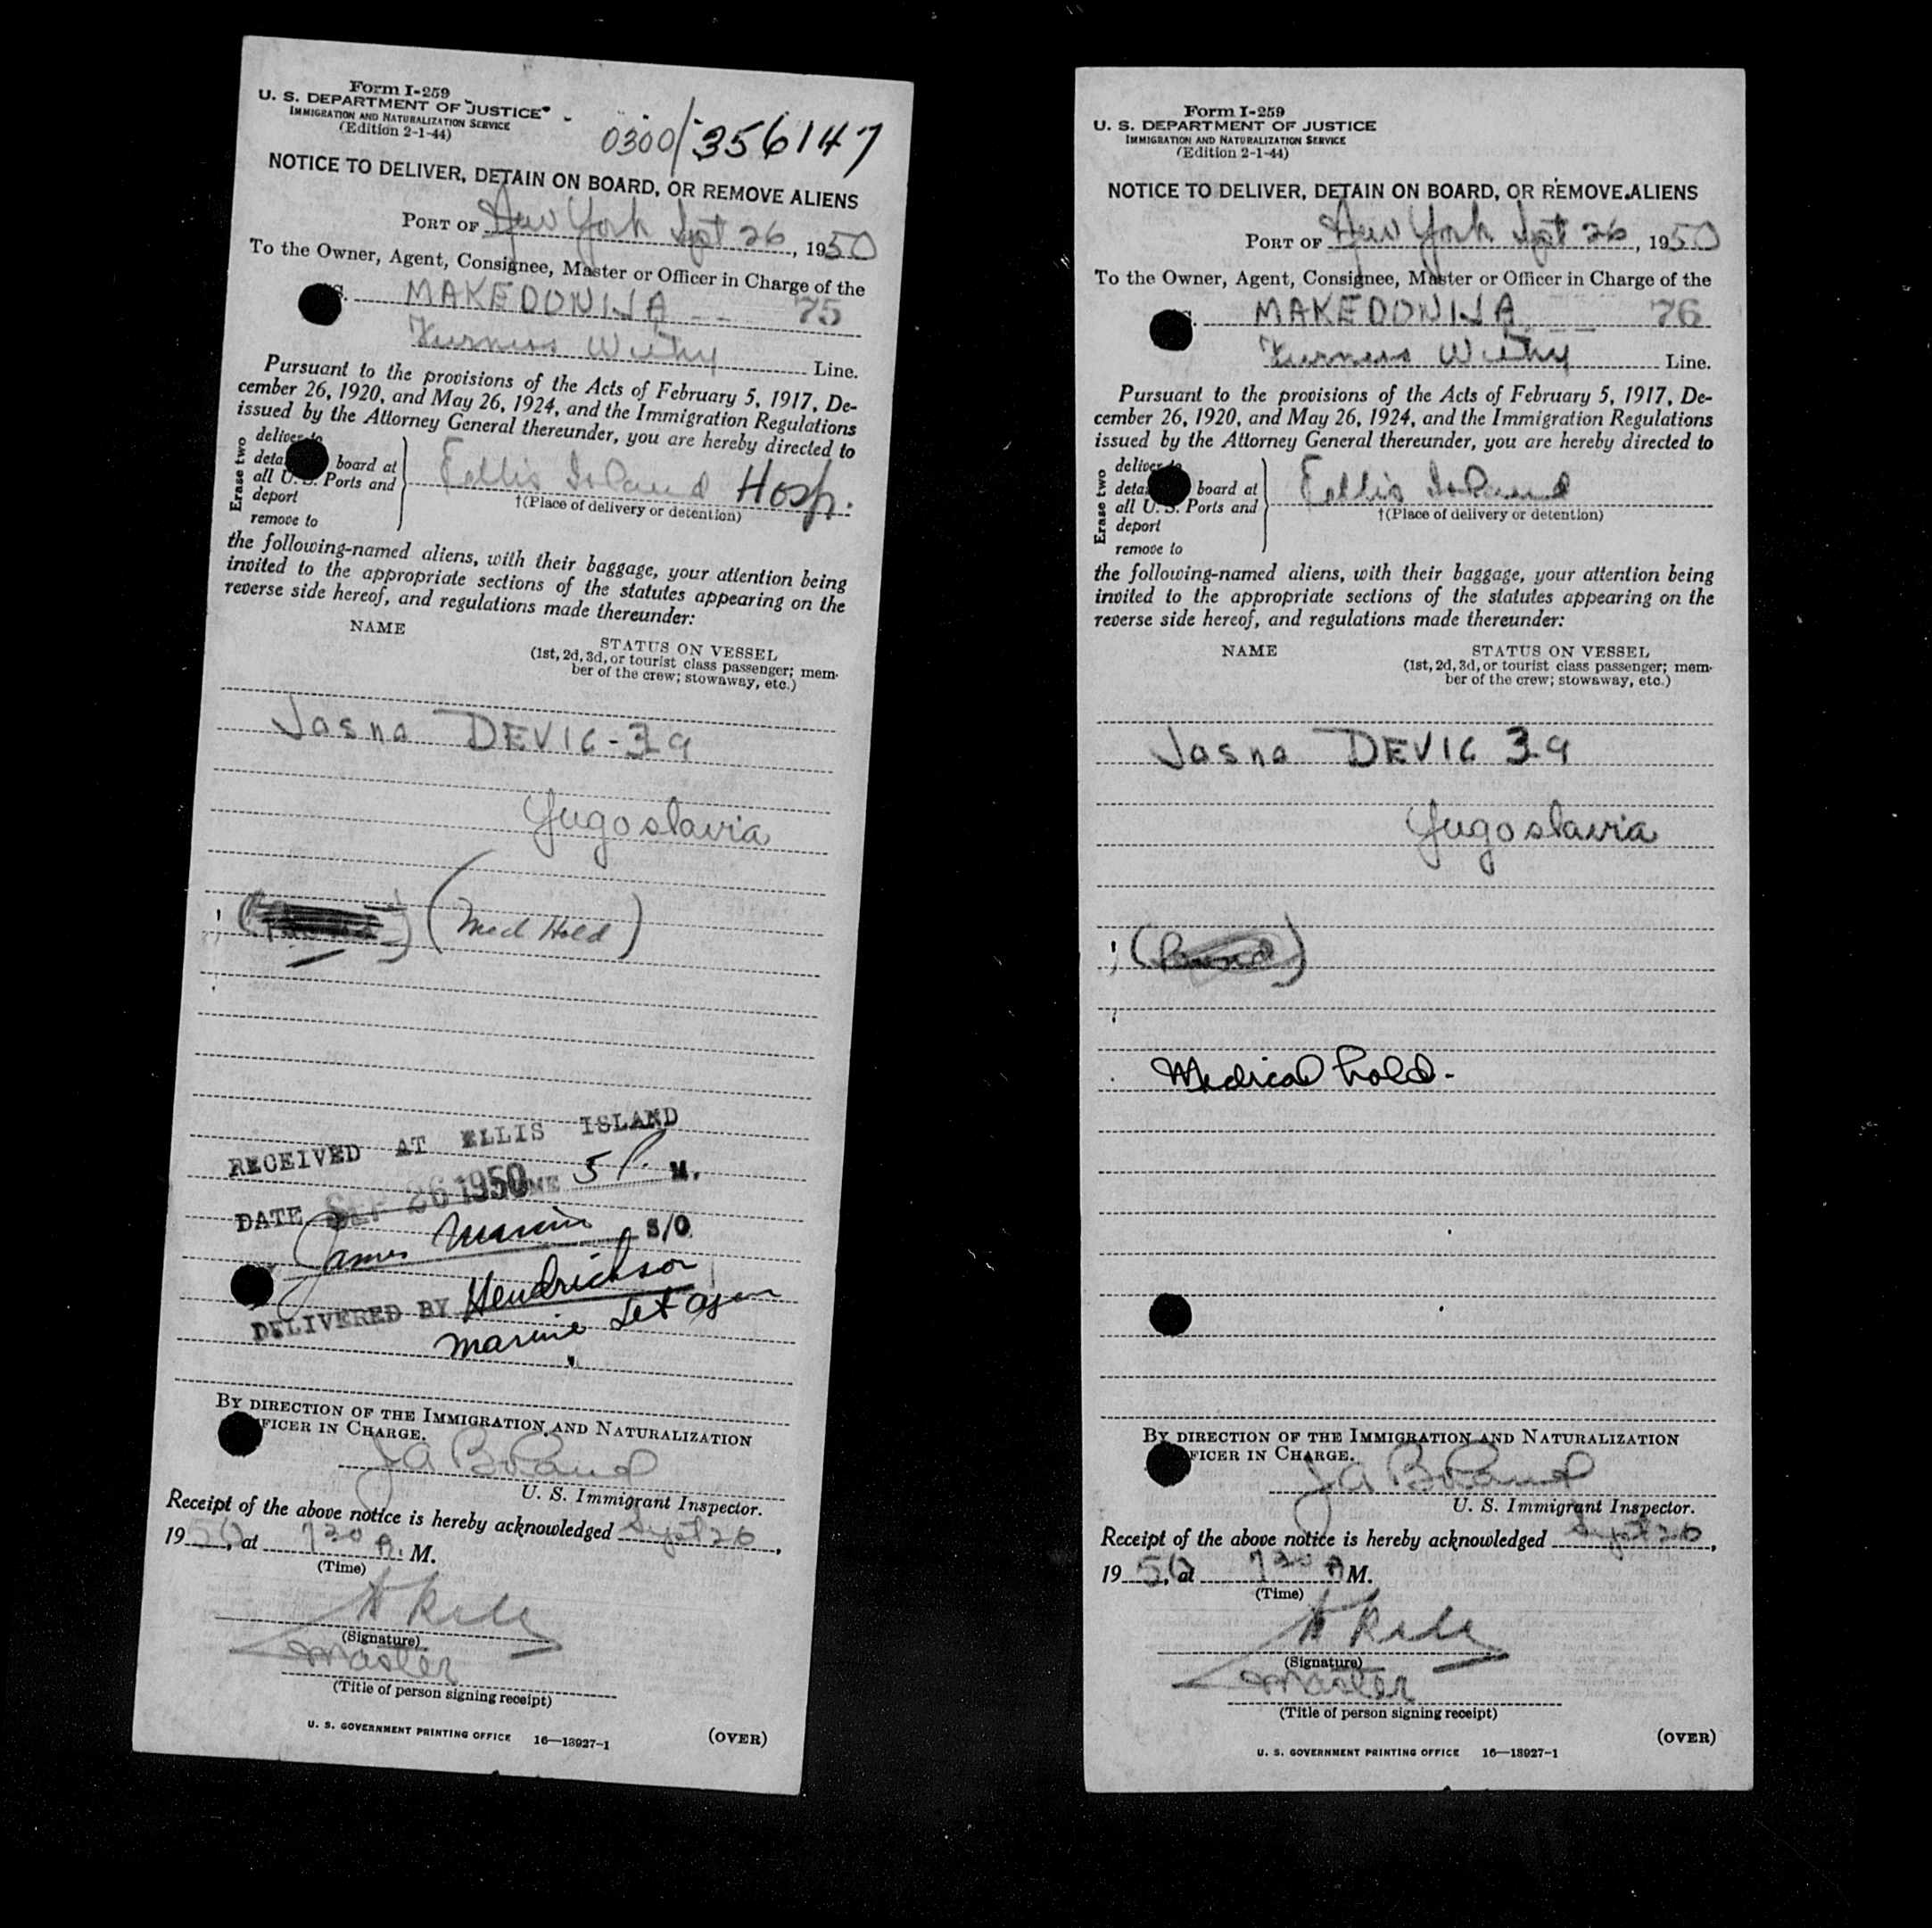 Form I-259
U. S. DEPARTMENT OF JUSTICE
IMMIGRATION AND NATURALIZATION SERVICE
(Edition 2-1-44)
0300/356147
NOTICE TO DELIVER, DETAIN ON BOARD, OR REMOVE ALIENS
PORT OF New York Sept 26, 1950
To the Owner, Agent, Consignee, Master or Officer in Charge of the
S. MAKEDONIJA -- 75
Furness Withy Line.
Pursuant to the provisions of the Acts of February 5, 1917, De-
cember 26, 1920, and May 26, 1924, and the Immigration Regulations
issued by the Attorney General thereunder, you are hereby directed to
Erase two
deliver to
board at
all U. S. Ports and
deport
remove to
Ellis Island Hosp.
†(Place of delivery or detention)
the following-named aliens, with their baggage, your attention being
invited to the appropriate sections of the statutes appearing on the
reverse side hereof, and regulations made thereunder:
NAME
STATUS ON VESSEL
(1st, 2d, 3d, or tourist class passenger; mem-
ber of the crew; stowaway, etc.)
Jasna DEVIC - 39
Yugoslavia
(Med Hold)
RECEIVED AT ELLIS ISLAND
DATE SEP 26 1950 TIME 5 P. M.
James S/O
DELIVERED BY Hendrickson
Marine Det
BY DIRECTION OF THE IMMIGRATION AND NATURALIZATION
FICER IN CHARGE.
JA Boland
U. S. Immigrant Inspector.
Receipt of the above notice is hereby acknowledged Sept 26,
1950, at 730 A. M.
(Time)
(Signature)
Master
(Title of person signing receipt)
U. S. GOVERNMENT PRINTING OFFICE 16—13927-1
(OVER)
Form I-259
U. S. DEPARTMENT OF JUSTICE
IMMIGRATION AND NATURALIZATION SERVICE
(Edition 2-1-44)
NOTICE TO DELIVER, DETAIN ON BOARD, OR REMOVE ALIENS
PORT OF New York Sept 26, 1950
To the Owner, Agent, Consignee, Master or Officer in Charge of the
MAKEDONIJA -- 76
Furness Withy Line.
Pursuant to the provisions of the Acts of February 5, 1917, De-
cember 26, 1920, and May 26, 1924, and the Immigration Regulations
issued by the Attorney General thereunder, you are hereby directed to
Erase two
deliver to
board at
all U. S. Ports and
deport
remove to
Ellis Island
†(Place of delivery or detention)
the following-named aliens, with their baggage, your attention being
invited to the appropriate sections of the statutes appearing on the
reverse side hereof, and regulations made thereunder:
NAME
STATUS ON VESSEL
(1st, 2d, 3d, or tourist class passenger; mem-
ber of the crew; stowaway, etc.)
Jasna DEVIC 39
Yugoslavia
Medical hold.
BY DIRECTION OF THE IMMIGRATION AND NATURALIZATION
FICER IN CHARGE.
JA Boland
U. S. Immigrant Inspector.
Receipt of the above notice is hereby acknowledged Sept 26,
1950, at 730 A M.
(Time)
(Signature)
Master
(Title of person signing receipt)
U. S. GOVERNMENT PRINTING OFFICE 16—13927-1
(OVER)